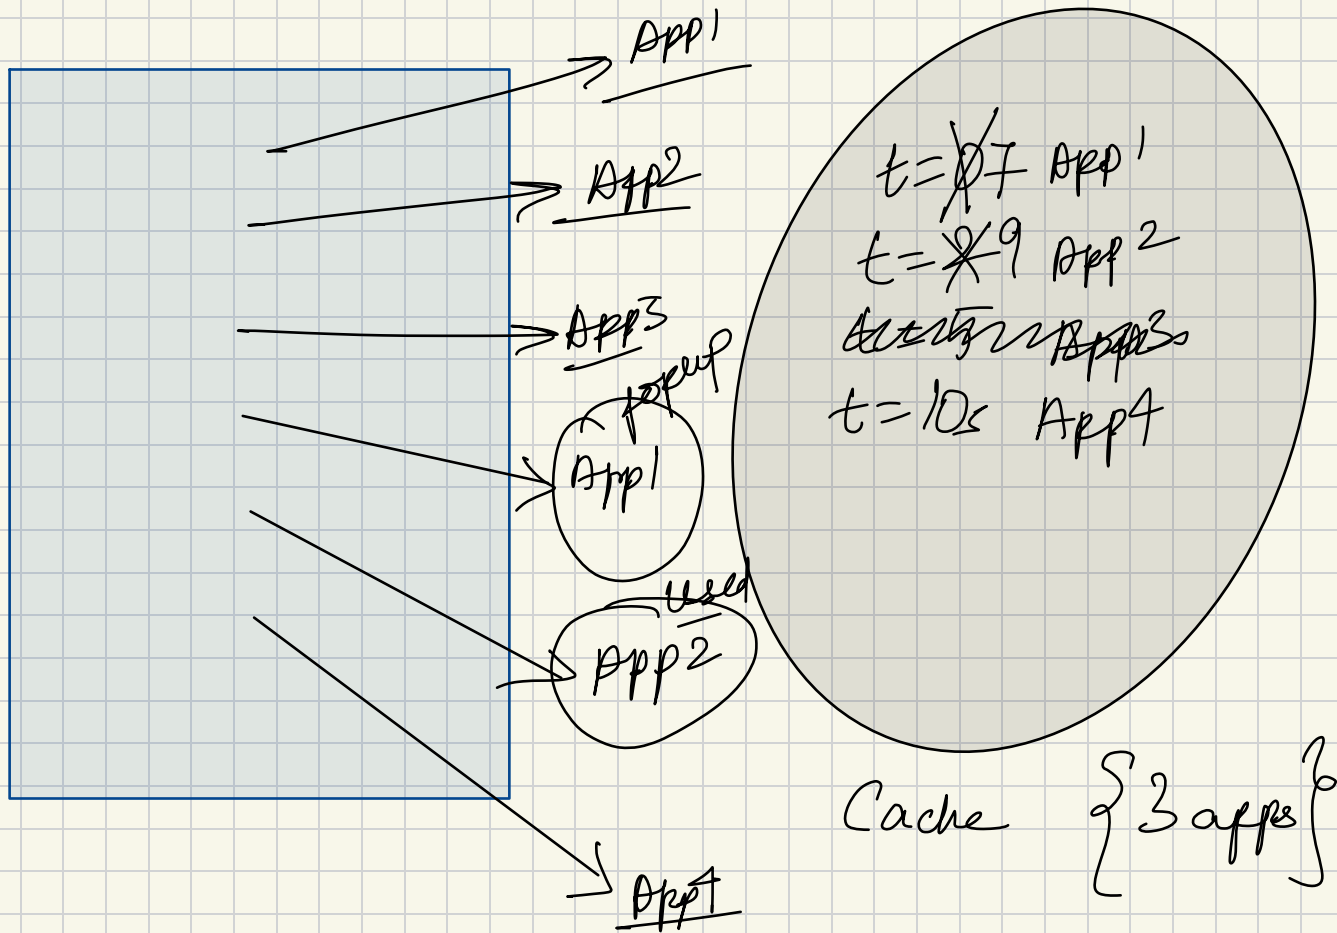 App1
App2
App3
popup
App1
used
App2
App4
t=0 7 App1
t=2 9 App2
t=5 App3
t=10s App4
Cache {3 apps}